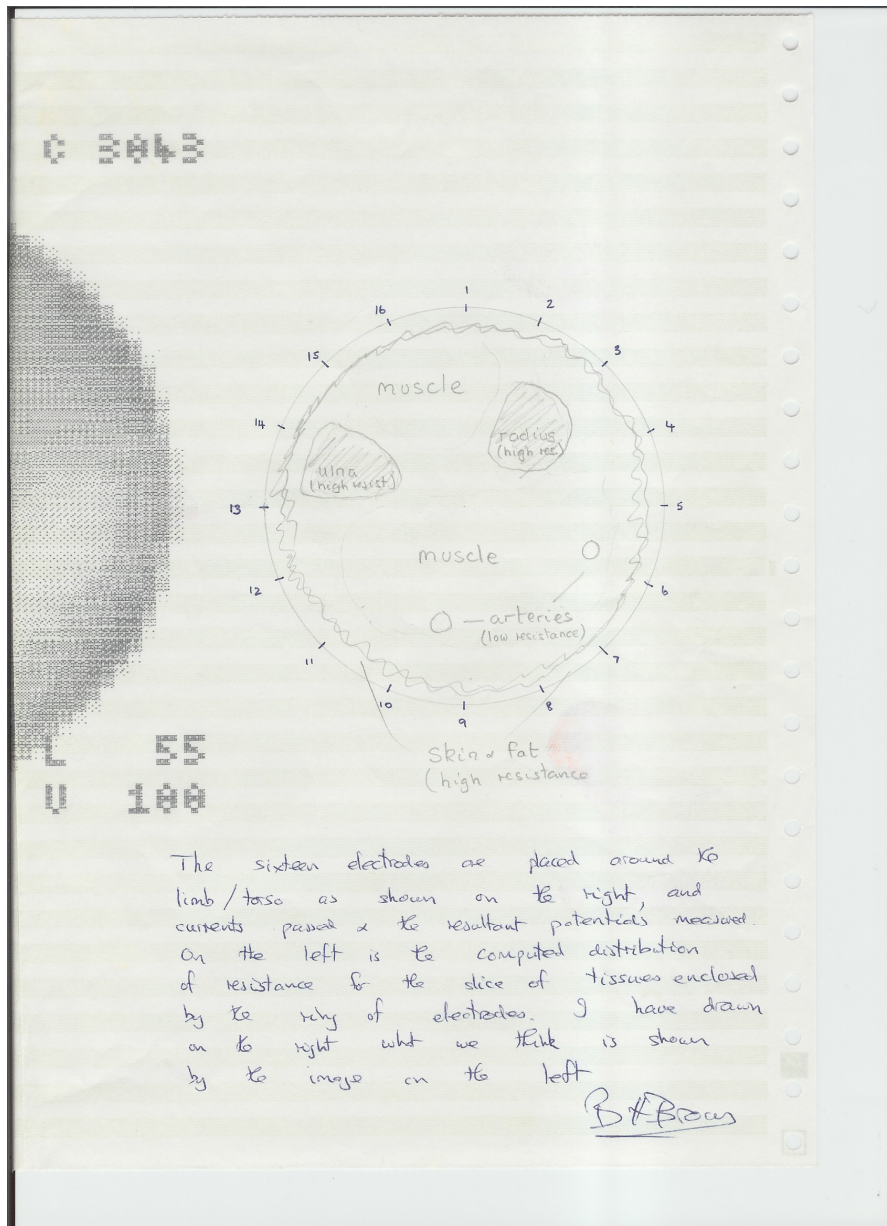 C 3843
1
2
3
4
5
6
7
8
9
10
11
12
13
14
15
16
muscle
radius
(high res)
ulna
(high resist)
muscle
arteries
(low resistance)
Skin & fat
(high resistance
L 55
V 100
The sixteen electrodes are placed around the
limb/torso as shown on the right, and
currents passed & the resultant potentials measured.
On the left is the computed distribution
of resistance for the slice of tissues enclosed
by the ring of electrodes. I have drawn
on the right what we think is shown
by the image on the left
B H Brown